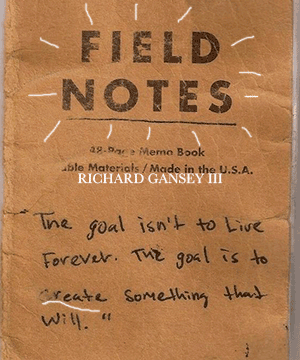 FIELD
NOTES
48-Page Memo Book
able Materials / Made in the U.S.A.
RICHARD GANSEY III
The goal isn't to Live
Forever. The goal is to
create something that
will. "